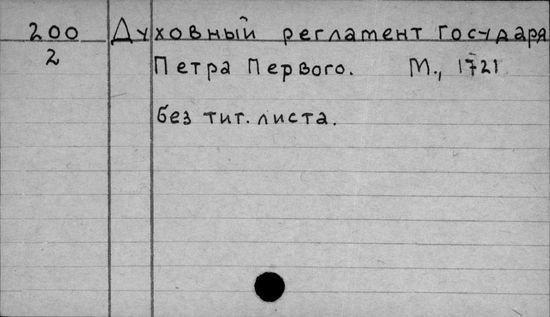 200 Духовный регламент государя
2 Петра Первого. М., 1721
без тит. листа.